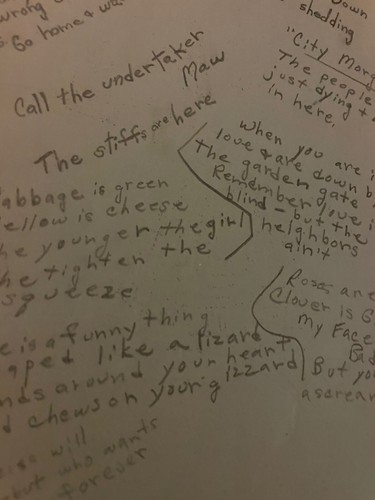 wrong
Go home & wa
Call the undertaker
Maw
The stiffs are here
abbage is green
ellow is cheese
he younger the girl
he tighten the
squeeze
e is a funny thing
aped like a lizard
nds around your heart
d chews on your gizzard
will
but who wants
forever
Down
shedding
"City Mor
The people
just dying t
in here.
When you are i
love & are down b
the garden gate
Remember love i
blind - but the
neighbors
ain't
Roses are
Clover is G
My Face
But yo
a screa